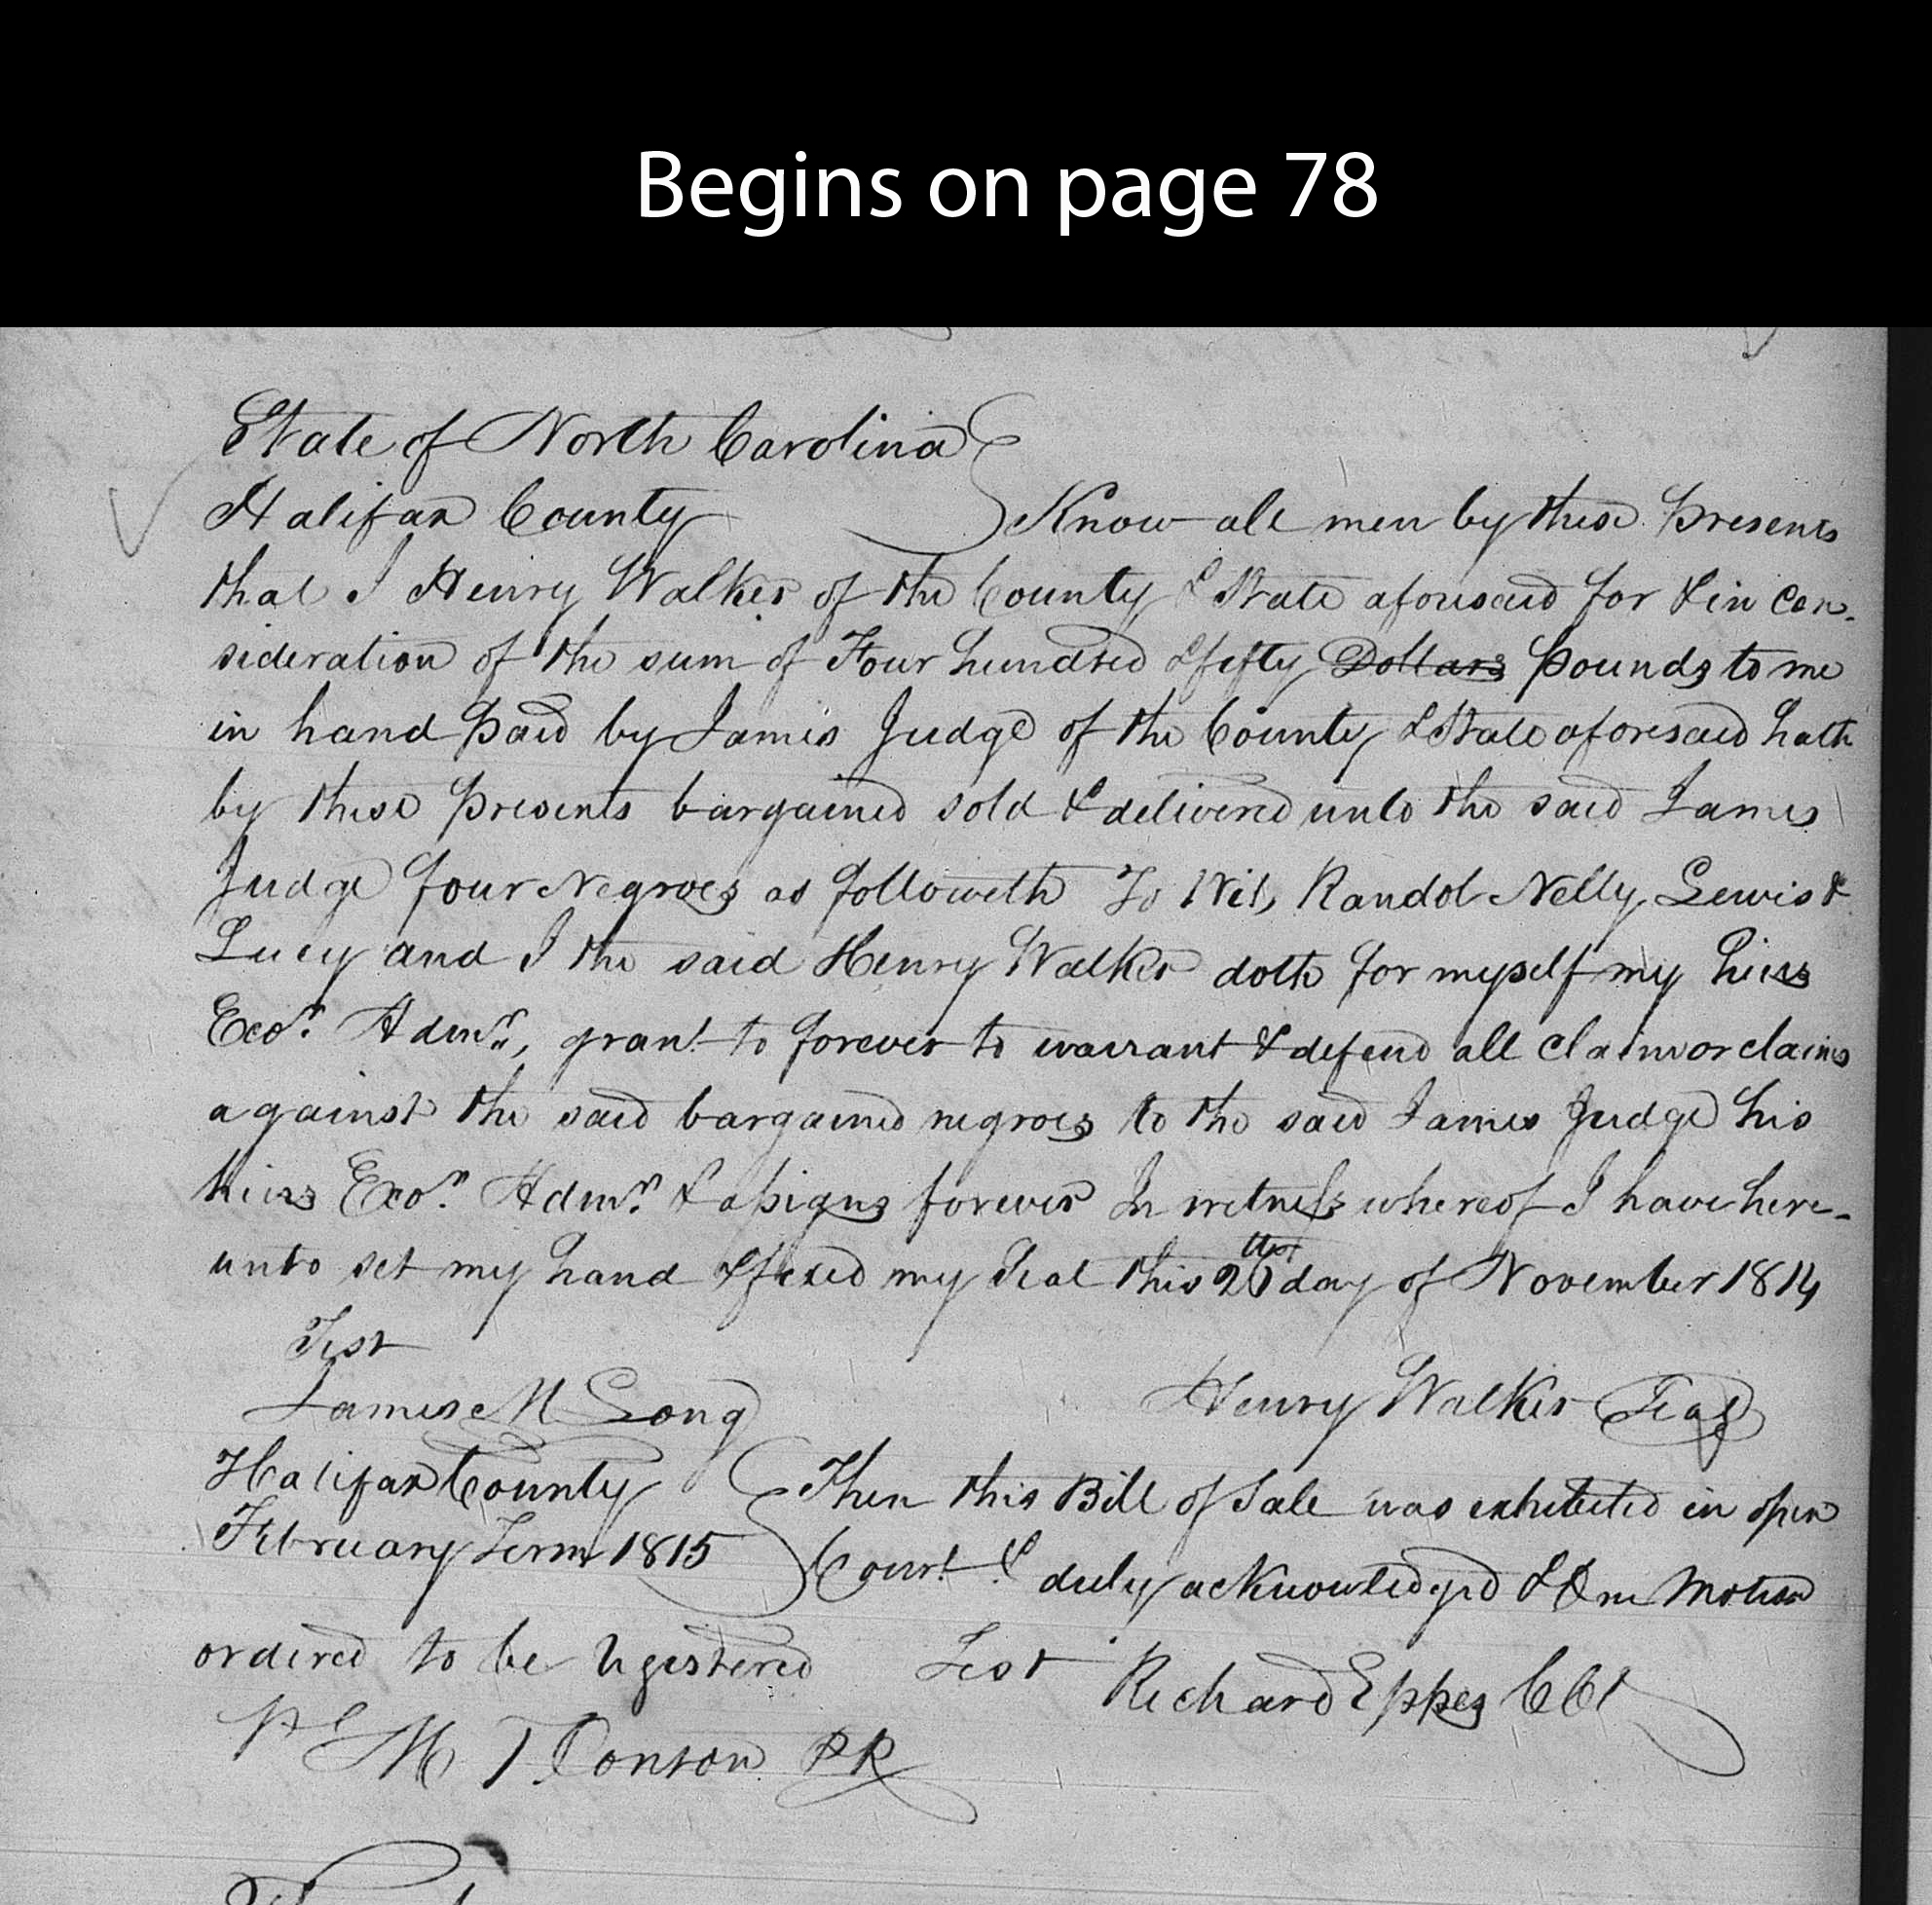 Begins on page 78
State of North Carolina
Halifax County Know all men by these presents
that I Henry Walker of the County & State aforesaid for & in Con-
sideration of the sum of Four hundred & fifty Dollars pounds to me
in hand paid by James Judge of the County & State aforesaid hath
by these presents bargained sold & delivered unto the said James
Judge four Negroes as followeth To Wit, Randol Nelly, Lewis &
Lucy and I the said Henry Walker doth for myself my hiers
Exors Admrs, grant to forever to warrant & defend all claim or claims
against the said bargained negroes to the said James Judge his
hiers Exors Admrs & assigns forever In witness whereof I have here-
unto set my hand & fixed my Seal this 26th day of November 1814
Test
James M Long Henry Walker Seal
Halifax County Then this Bill of Sale was exhibited in open
February Term 1815 Court & duly acknowledged & On Motion
ordered to be registered Test Richard Eppes CCt
M T Conson PR